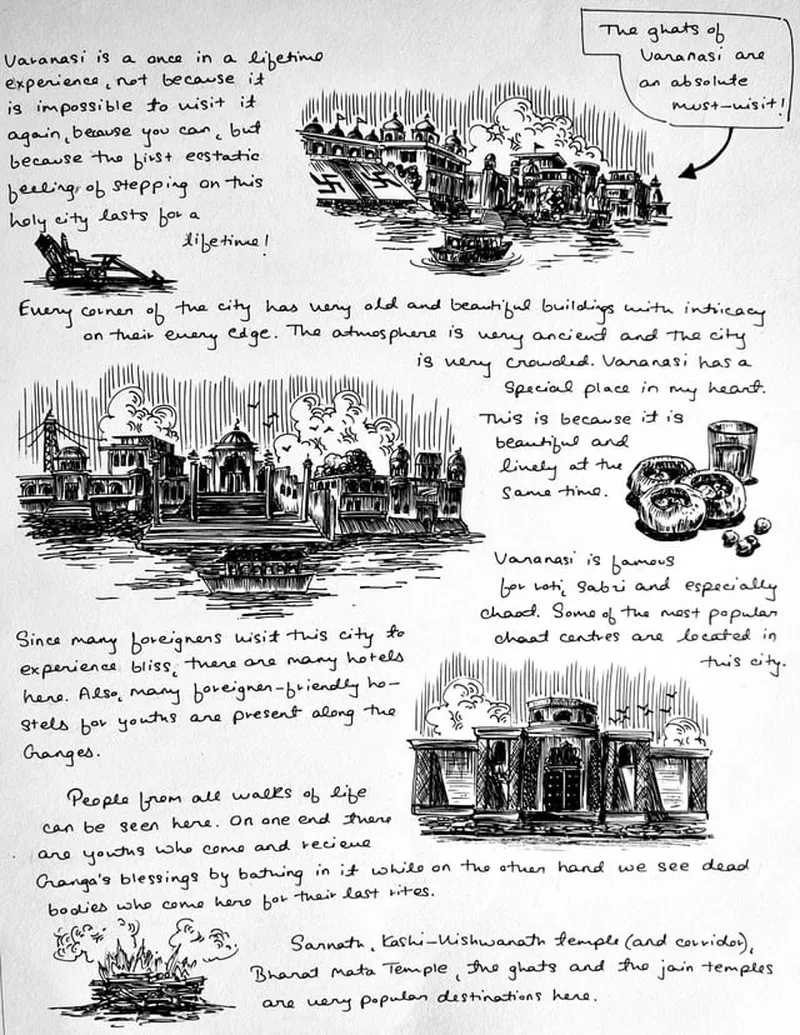 The ghats of
Varanasi are
an absolute
must-visit!
Varanasi is a once in a lifetime
experience, not because it
is impossible to visit it
again, because you can, but
because the first ecstatic
feeling, of stepping on this
holy city lasts for a
lifetime!
Every corner of the city has very old and beautiful buildings with intricacy
on their every edge. The atmosphere is very ancient and the city
is very crowded. Varanasi has a
special place in my heart.
This is because it is
beautiful and
lively at the
same time.
Varanasi is famous
for roti, sabzi and especially
chaat. Some of the most popular
chaat centres are located in
this city.
Since many foreigners visit this city to
experience bliss, there are many hotels
here. Also, many foreigner-friendly ho-
stels for youths are present along the
Ganges.
People from all walks of life
can be seen here. On one end there
are youths who come and recieve
Ganga's blessings by bathing in it while on the other hand we see dead
bodies who come here for their last rites.
Sarnath, Kashi-Vishwanath temple (and corridor),
Bharat Mata Temple, the ghats and the jain temples
are very popular destinations here.